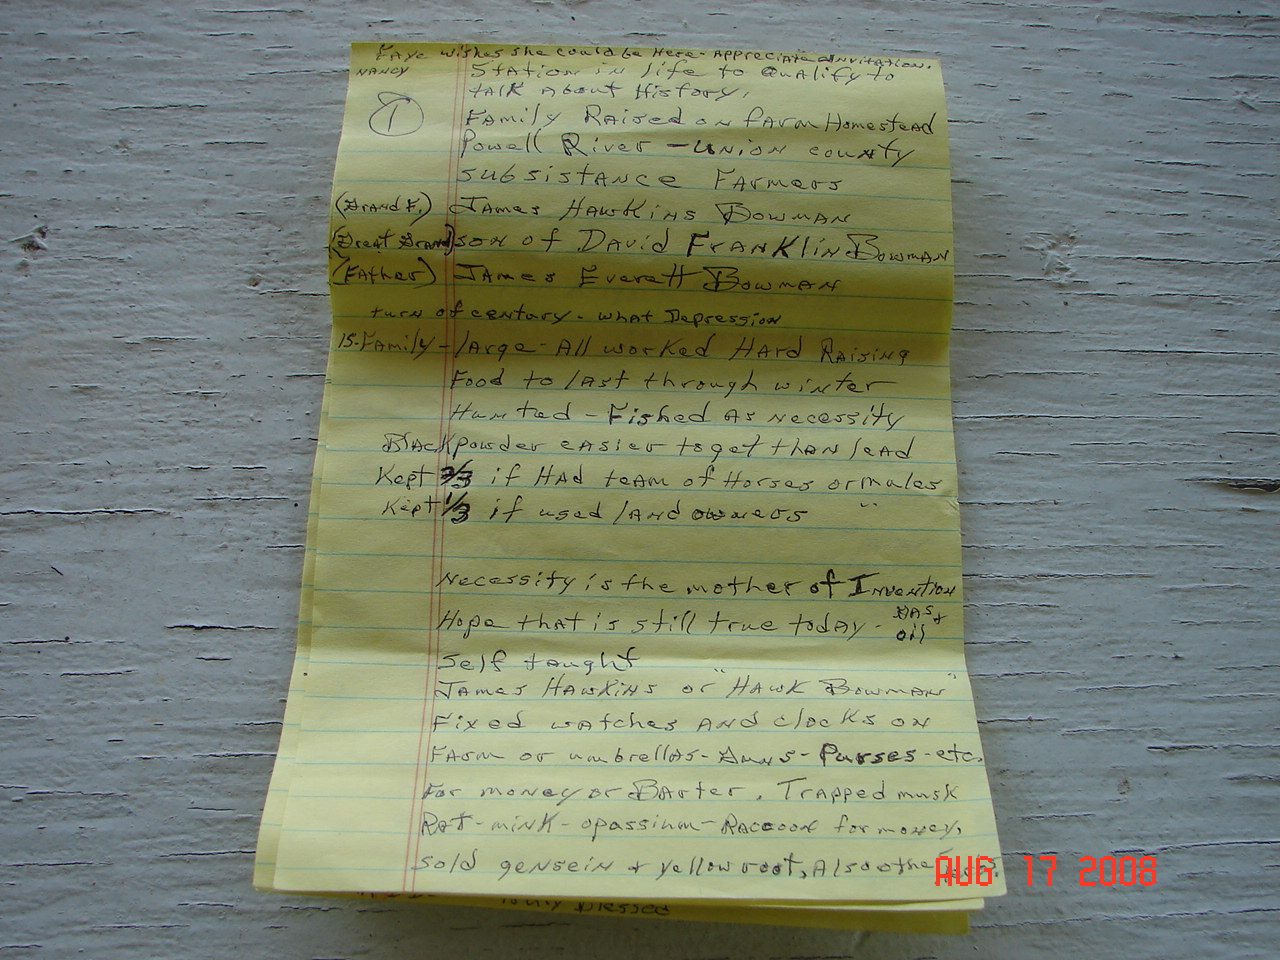 Faye wishes she could be Here - Appreciate invitation.
NANCY
Station in life to Qualify to
talk About History,
1
Family Raised on farm Homestead
Powell River - Union county
subsistance Farmers
(Grand F.) James Hawkins Bowman
(Great Grand) son of David Franklin Bowman
(Father) James Everett Bowman
turn of century - what Depression
15-Family - large - All worked Hard Raising
Food to last through winter
Hunted - Fished As necessity
Black powder easier to get than lead
Kept 2/3 if Had team of Horses or mules
Kept 1/3 if used land owners "
Necessity is the mother of Invention
Hope that is still true today - gas +
oil
Self taught
James Hawkins or "Hawk Bowman"
Fixed watches and clocks on
Farm or umbrellas - Guns - Purses - etc.
For money or Barter. Trapped musk
Rat - mink - opassium - Raccoon for money,
Sold gensein + yellow root, Also
AUG 17 2008
Blessed